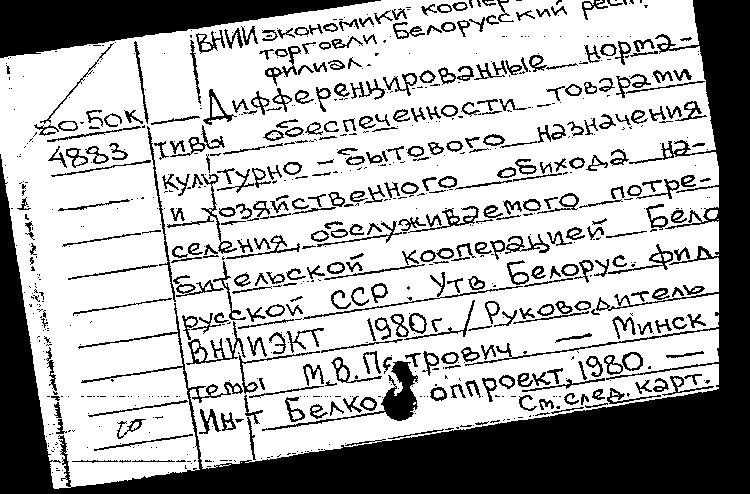 ВНИИ экономики кооп
торговли. Белорусский респ.
филиал.
80-БОК Дифференцированные норма-
4883 тивы обеспеченности товарами
культурно-бытового назначения
и хозяйственного обихода на-
селения, обслуживаемого потре-
бительской кооперацией Бело
русской ССР: Утв. Белорус. фил.
ВНИИЭКТ 1980г./Руководитель
темы М.В.Петрович. — Минск:
Ин-т Белко оппроект, 1980. —
См. след. карт.